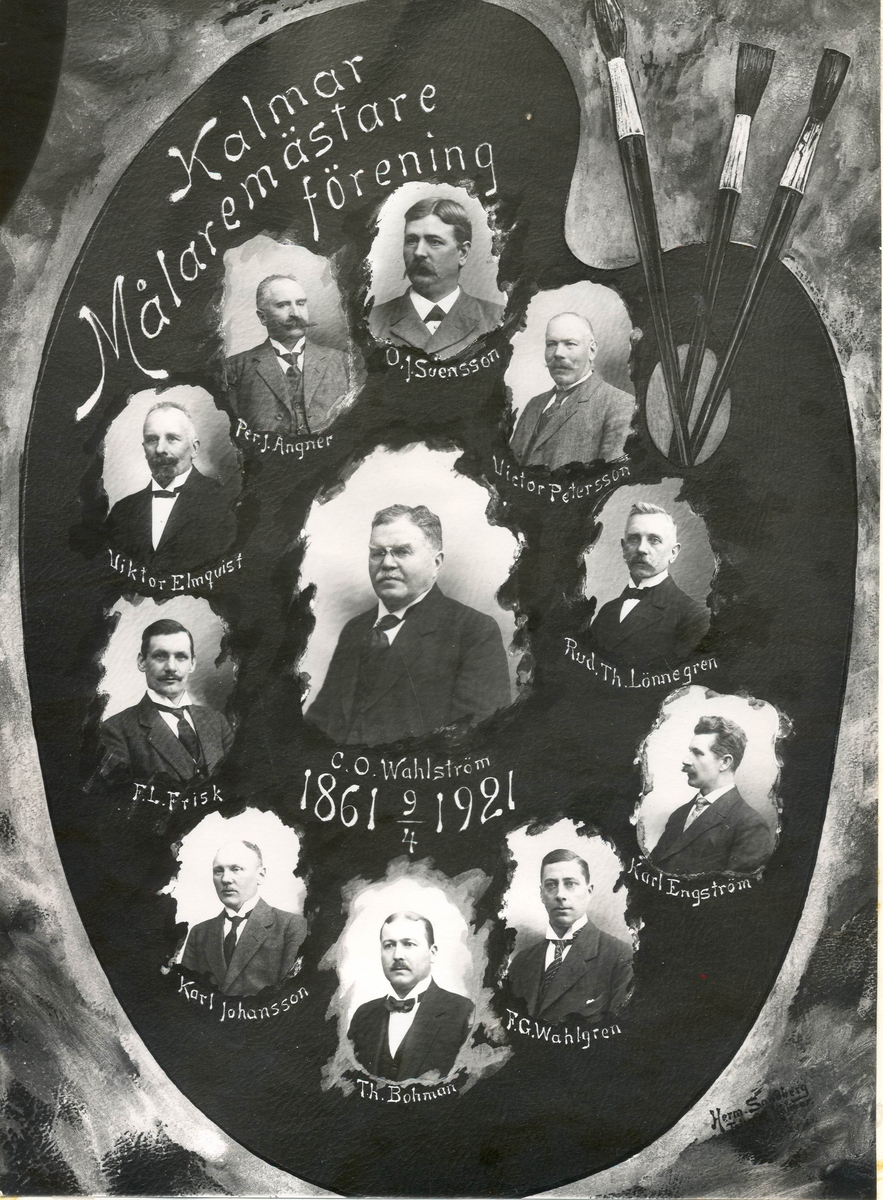 Kalmar
Målaremästare
förening
O.J. Svensson
Per. J. Angner
Victor Petersson
Viktor Elmquist
Rud. Th. Lönnegren
F.L. Frisk
C. O. Wahlström
1861 9/4 1921
Karl Engström
Karl Johansson
F.G. Wahlgren
Th. Bohman
Herm.